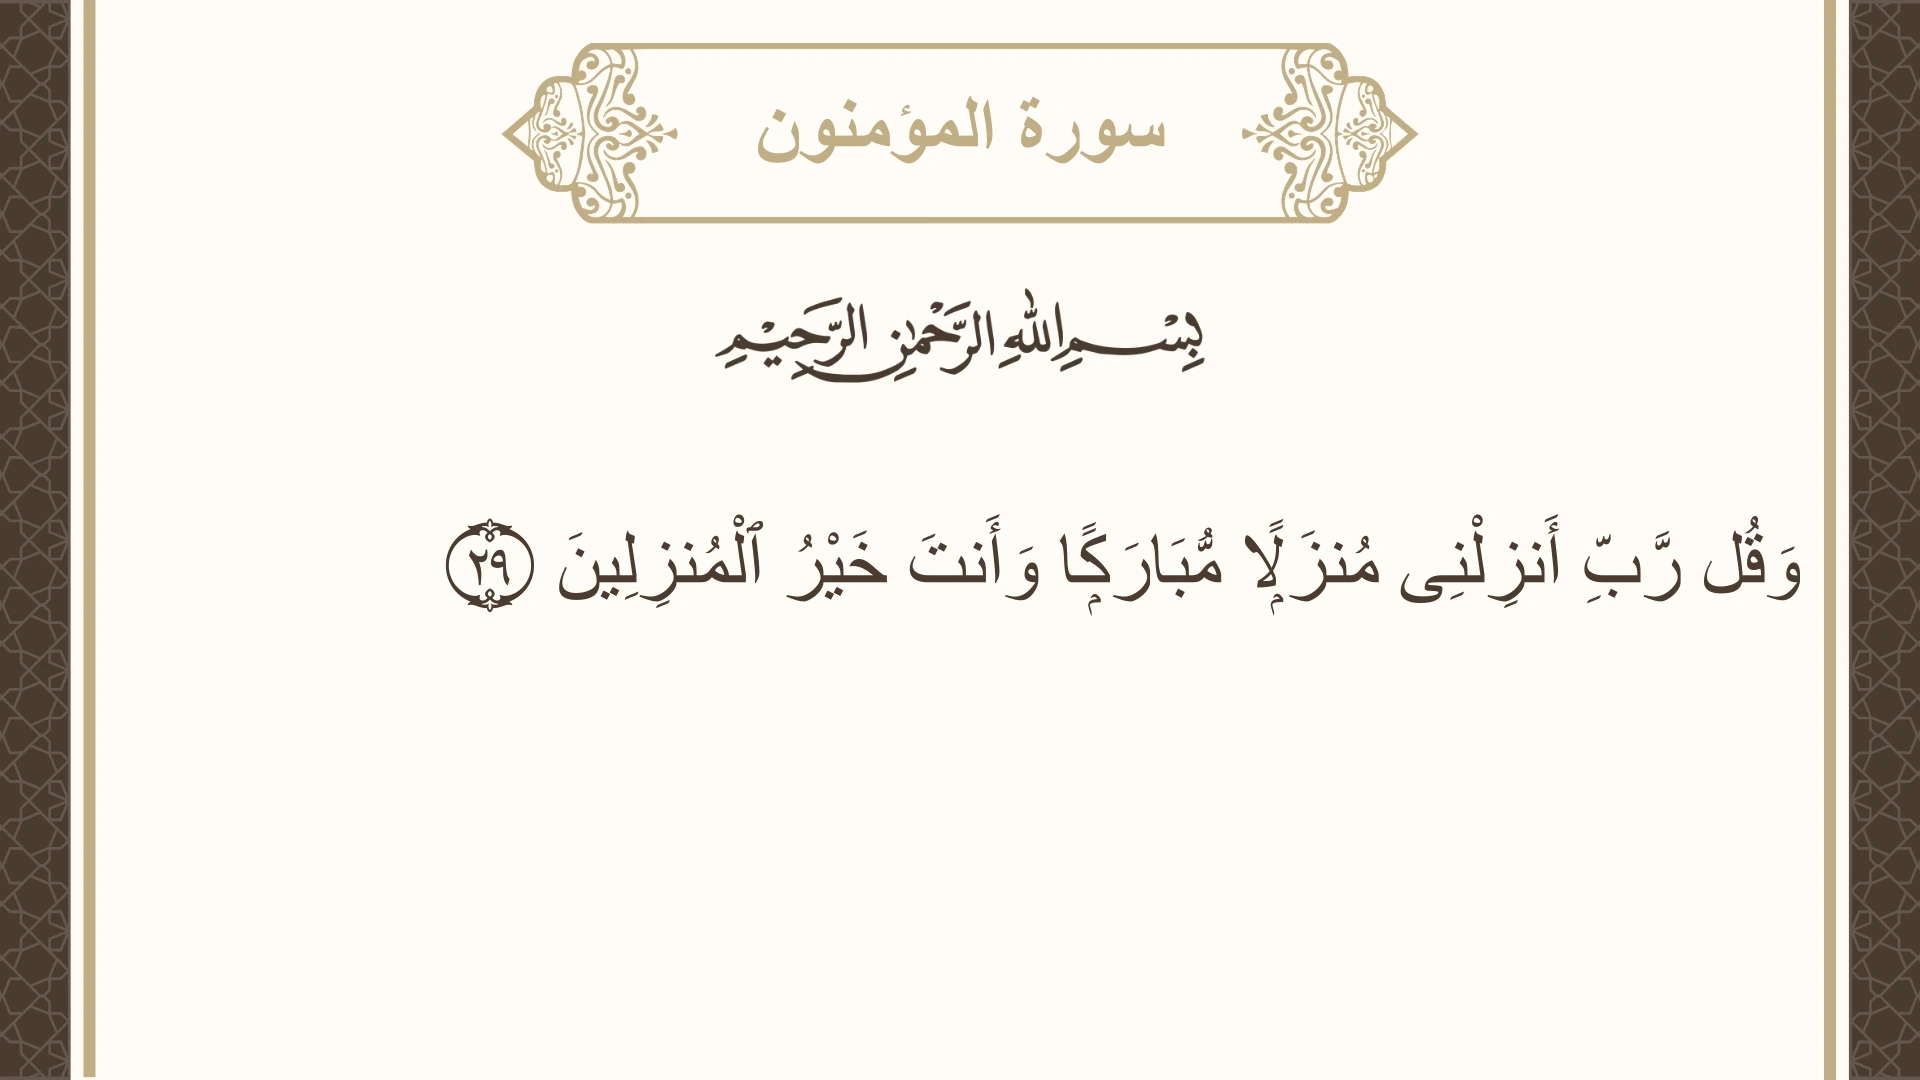 سورة المؤمنون
بِسْمِ اللهِ الرَّحْمٰنِ الرَّحِيْمِ
وَقُل رَّبِّ أَنزِلْنِى مُنزَلًۭا مُّبَارَكًۭا وَأَنتَ خَيْرُ ٱلْمُنزِلِينَ ٢٩